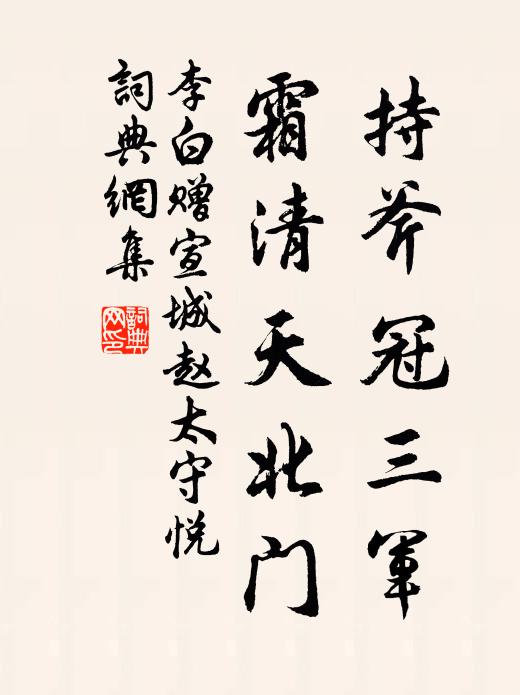 持斧冠三軍
霜清天北门
李白赠宣城赵太守悦
詞典網集
詞典网印